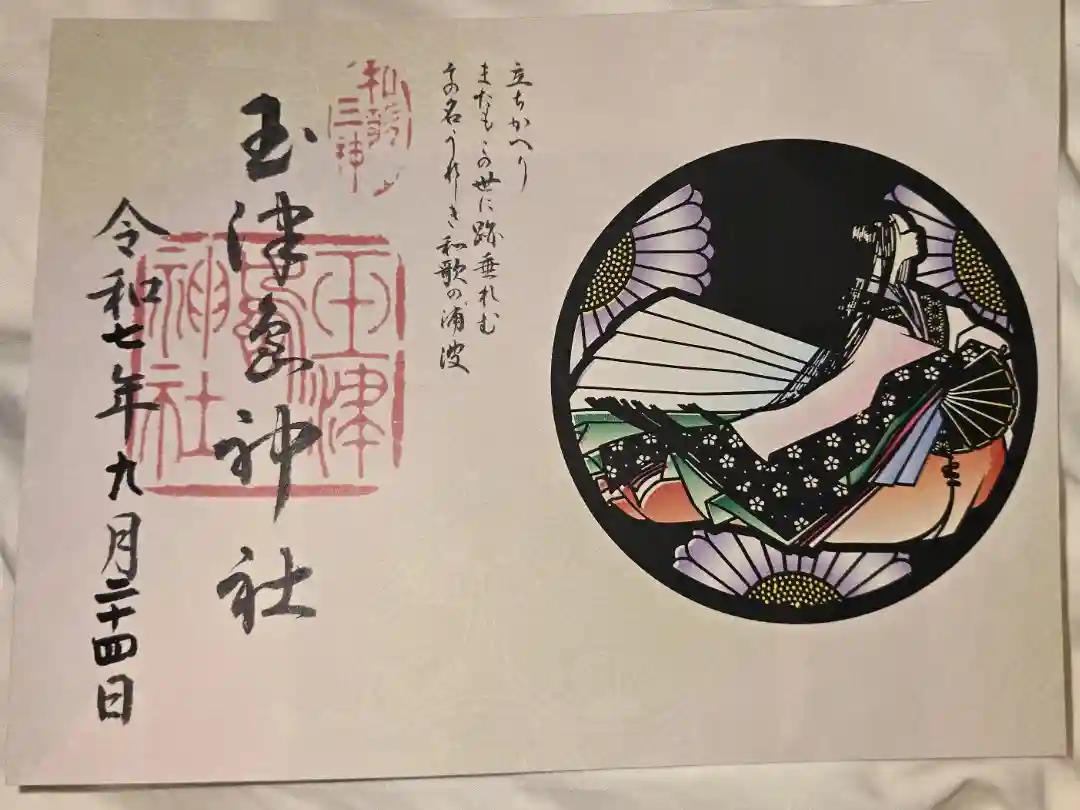 立ちかへり
またもこの世に跡垂れむ
その名うれしき和歌の浦波
和歌
三神
玉津島神社
玉津
島
神社
令和七年九月二十四日